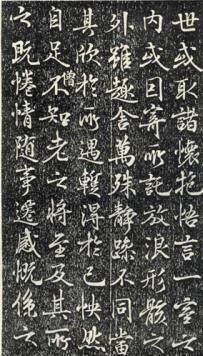 世或取諸懷抱悟言一室之
內或因寄所託放浪形骸之
外雖趣舍萬殊靜躁不同當
其欣於所遇暫得於己怏然
僧
自足不知老之將至及其所
之既惓情隨事遷感慨係之